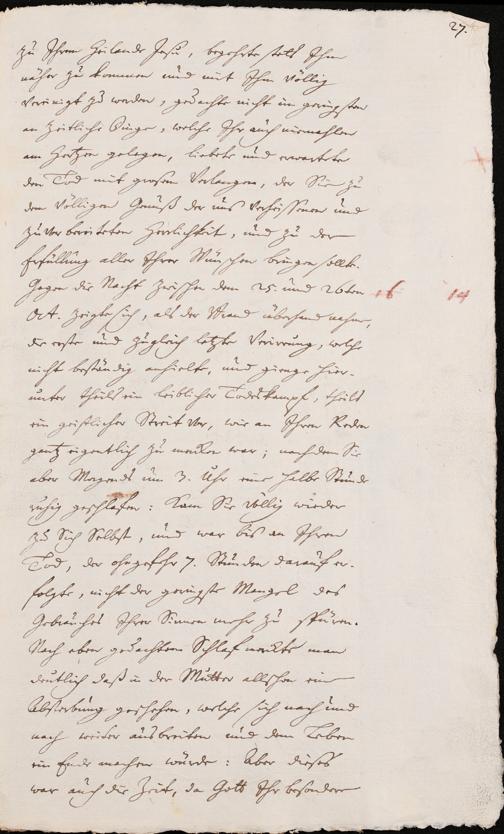 27.
zu Ihrem Heilande Jesu, begehrte stets Ihm
näher zu kommen und mit Ihm völlig
vereinigt zu werden, gedachte nicht im geringsten
an zeitliche Dinge, welche Ihr auch niemahlen
am Hertzen gelegen, liebete und erwartete
den Tod mit großem Verlangen, der Sie zu
dem völligen Genuß der uns verheissenen und
zubereiteten Herrlichkeit, und zu der
Erfüllung aller Ihrer Wünschen bringen sollte.
Gegen die Nacht zwischen dem 25. und 26ten 16 14
Oct. zeigte sich, als der Brand überhand nahm,
die erste und zugleich letzte Verirrung, welche
nicht beständig anhielte, und gienge hier-
unter theils ein leiblicher Todeskampf, theils
ein geistlicher Streit vor, wie an Ihren Reden
gantz eigentlich zu mercken war; nachdem Sie
aber Morgends um 3. Uhr eine halbe Stunde
ruhig geschlafen: kam Sie völlig wieder
zu Sich Selbst, und war bis an Ihren
Tod, der ohngefehr 7. Stunden darauf er-
folgte, nicht der geringste Mangel des
Gebrauches Ihrer Sinnen mehr zu spüren.
Nach eben gedachtem Schlaf merckte man
deutlich daß in der Mutter allschon ein
Absterbung geschehen, welche sich nach und
nach weiter ausbreiten und dem Leben
ein Ende machen würde: Aber dieses
war auch die Zeit, da Gott Ihr besondere